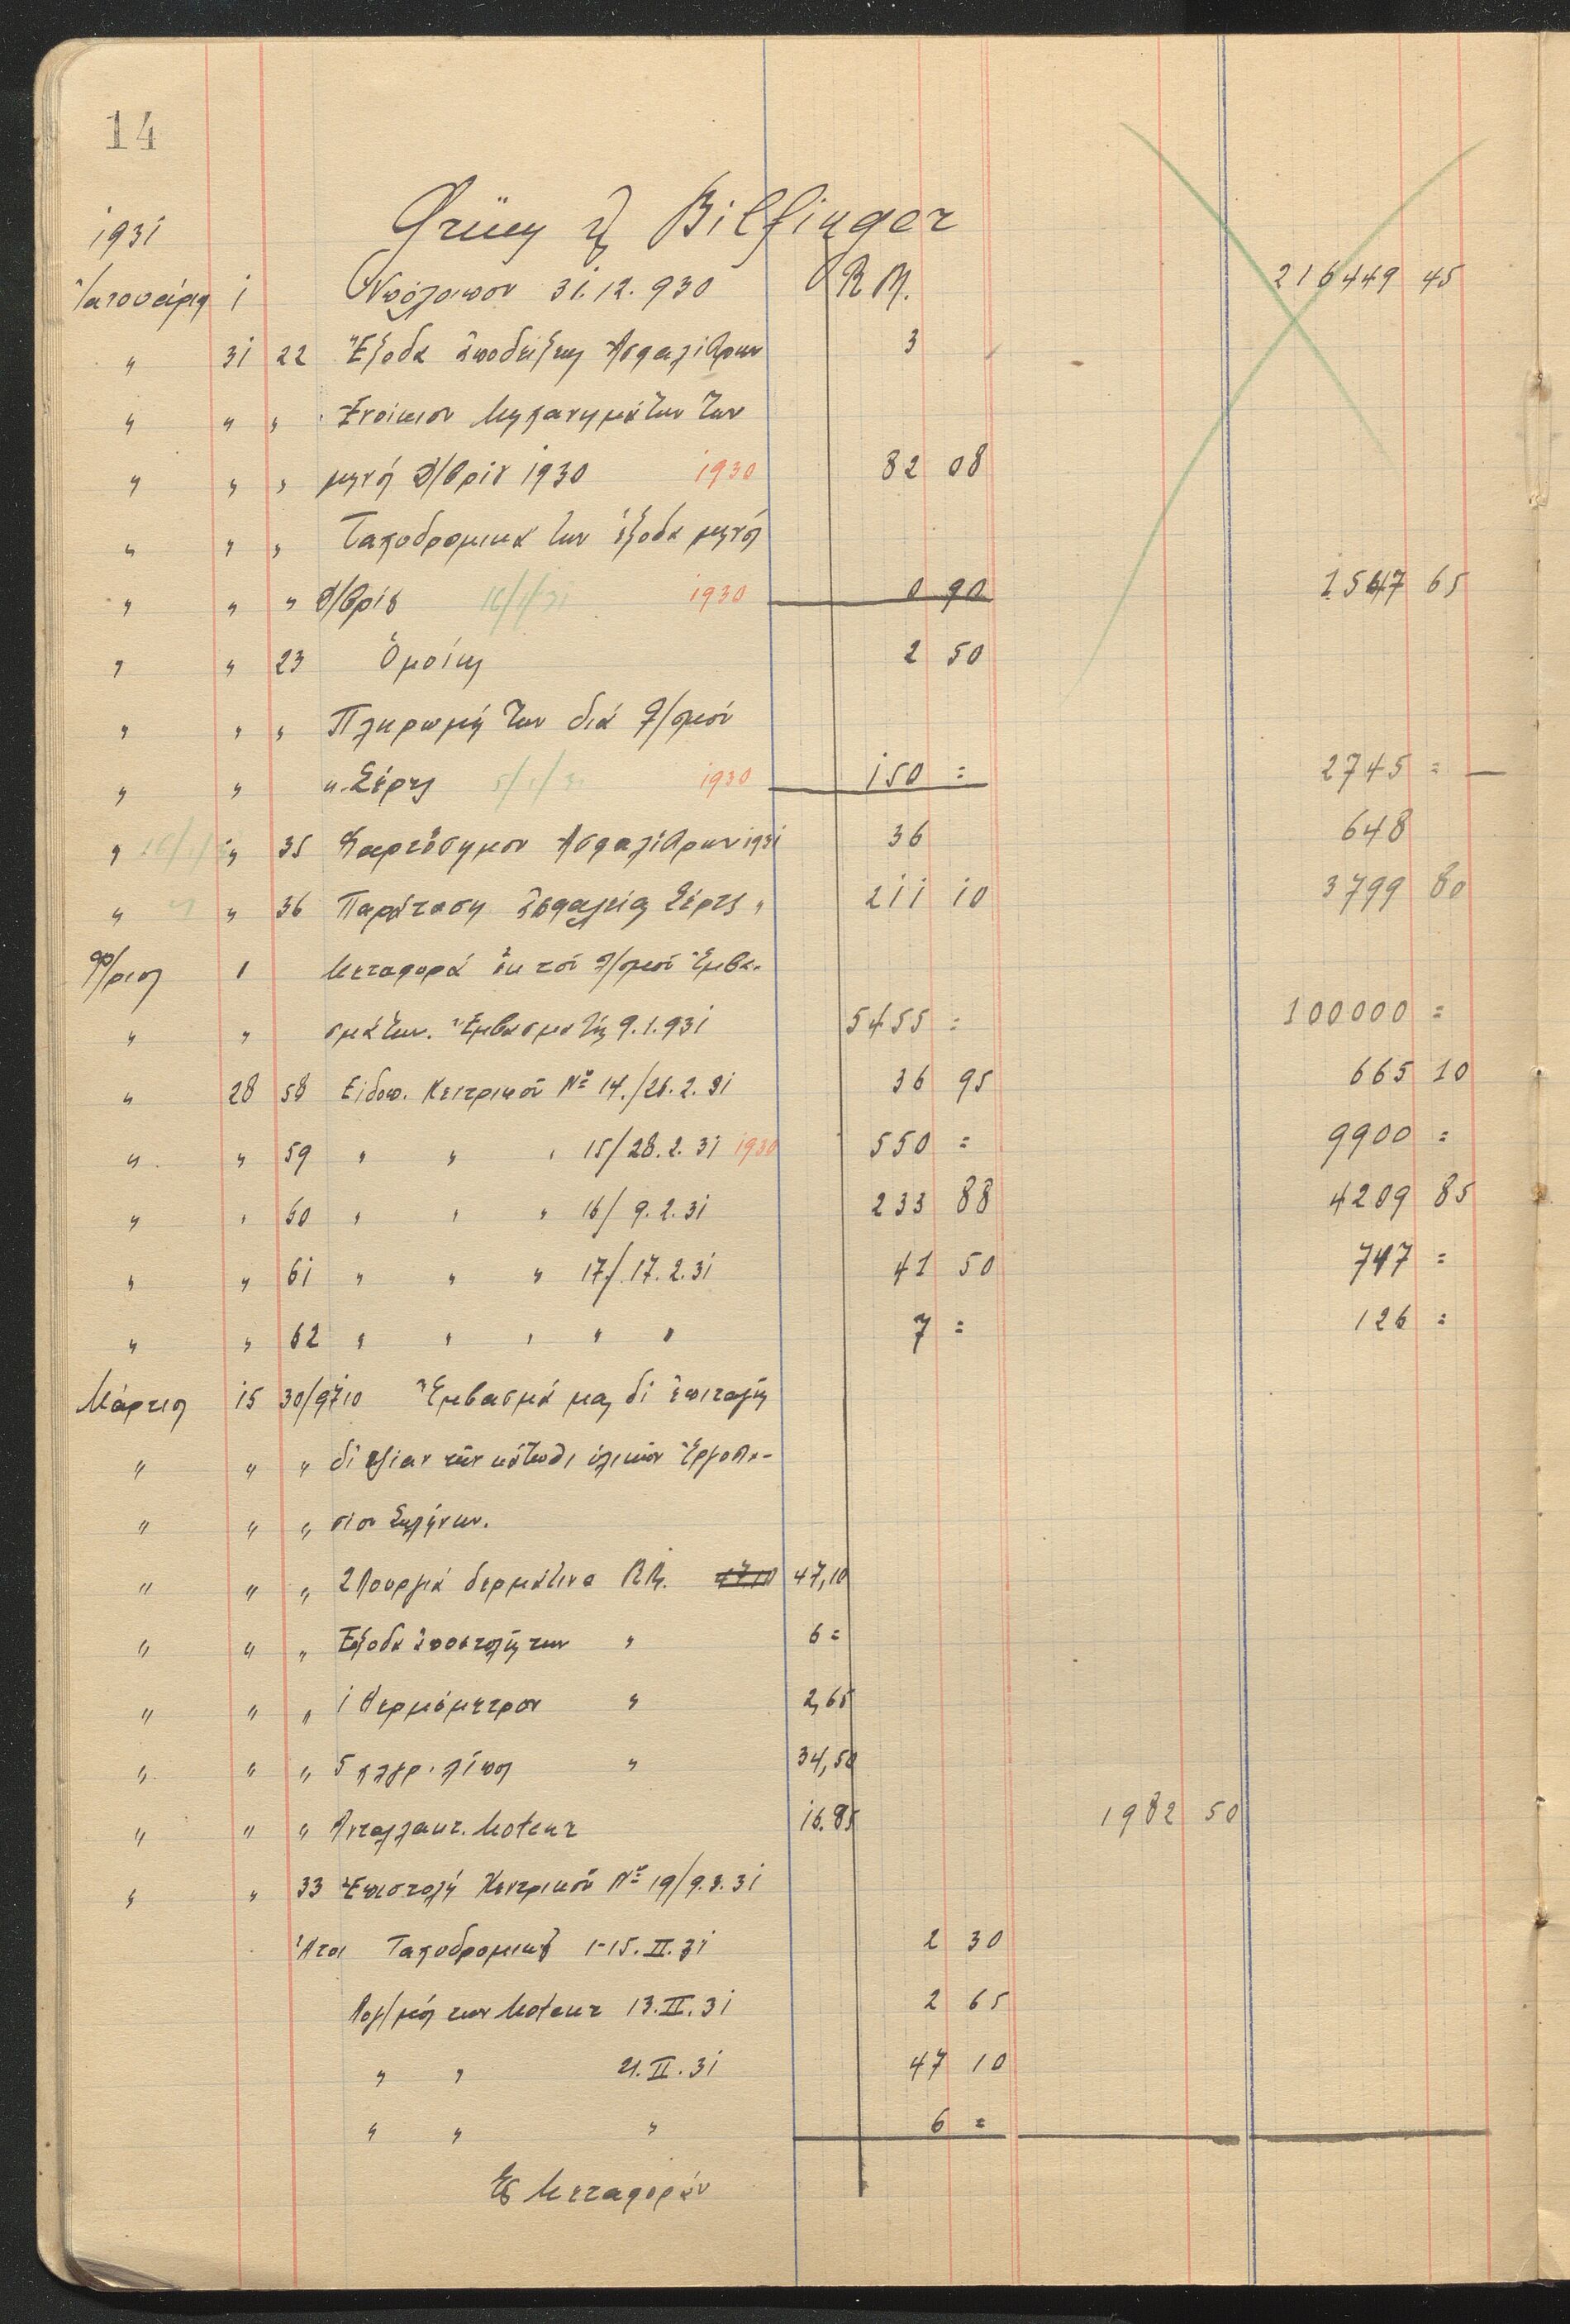 14
1931 Grün & Bilfinger
Ἰανουάριος 1 Ὑπόλοιπον 31.12.930 RM. 216449 45
" 31 22 Ἔξοδα ἀποδείξεως 3
" " " Ἐνοίκιον Μηχανημάτων των
" " " μηνός δ/βρίου 1930 1930 82 08
" " " Ταχυδρομικά των ἔξοδα μηνός
" " " δ/βρίου 16/1/31 1930 0 90 1547 65
" " 23 Ὁμοίως 2 50
" " " Πληρωμή των διά λ/σμόν
" " κ. Σέρτς 5/1/31 1930 150 = 2745 = —
" " 35 Χαρτόσημον 1931 36 648
" " 36 Παράτασις ἀσφαλείας Σέρτς " 211 10 3799 80
Φ/ριος 1 Μεταφορά ἐκ τοῦ λ/σμοῦ Ἐμβα-
" " σμάτων. Ἔμβασμα τῆς 9.1.931 5455 = 100000 =
" 28 58 Εἰδοπ. Κεντρικοῦ Nº 14./26.2.31 36 95 665 10
" " 59 " " " 15/28.2.31 1930 550 = 9900 =
" " 60 " " " 16/ 9.2.31 233 88 4209 85
" " 61 " " " 17/.17.2.31 41 50 747 =
" " 62 " " " " " 7 = 126 =
Μάρτιος 15 30/9710 Ἔμβασμά μας δι' ἐπιταγῆς
" " " δι' ἀξίαν τῶν κάτωθι ὑλικῶν Ἐργοτα-
" " " σίου Σωλήνων.
" " " 2 Λουριά δερμάτινα RM. 47,10 47,10
" " " Ἔξοδα ἀποστολῆς των " 6 =
" " " 1 Θερμόμετρον " 2,65
" " " 5 χλγρ. λίπος " 34,50
" " " Ἀνταλλακτ. Μοteur 16.85 1982 50
" " 33 Ἐπιστολή Κεντρικοῦ Nº 19/9.3.31
Ἤτοι Ταχυδρομικά 1-15.II.31 2 30
Λογ/μός των Μοteur 13.II.31 2 65
" " 21.II.31 47 10
" " " 6 =
Εἰς Μεταφοράν